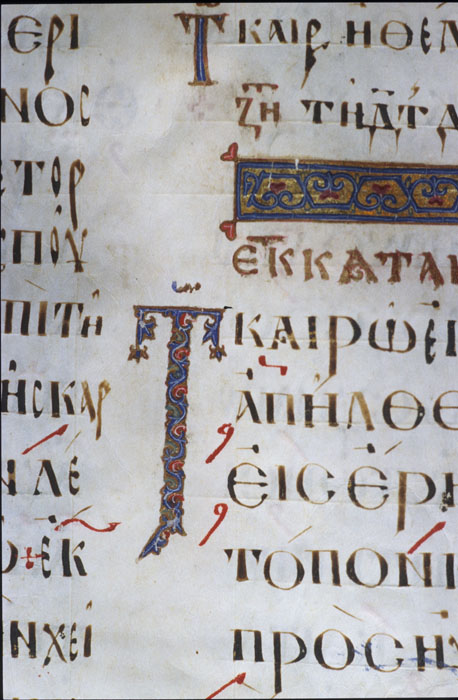 ΕΡΙ
ΝΟC
ΤΟΡ
CΠΟΥ
ΠΙΤῆ
ΗCΚΑΡ
Ν ΛΕ
Ο+ΕΚ
ΝΧΕΙ
Τ ΚΑΙΡ ΗΘΕΛ
ΖΗ ΤΗ Δ Τ
ΕΚ Κ ΑΤΑ
Τ ΚΑΙΡΩ ΕΙ
ἈΠΗΛΘΕ
ΕΙC ΕΡΗ
ΤΟΠΟΝ
ΠΡΟCΗΥ